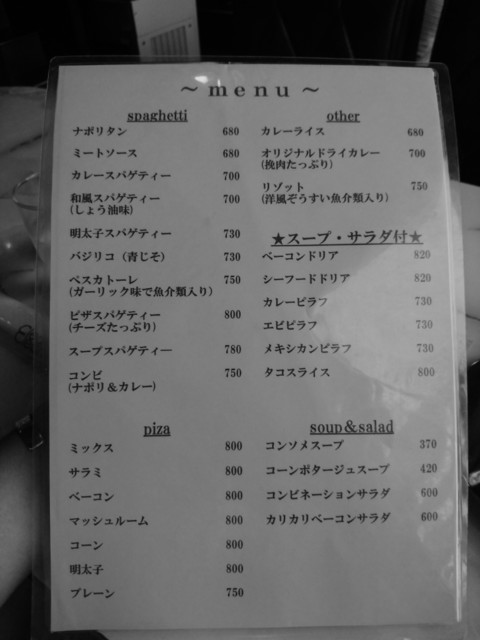 ～menu～
spaghetti
ナポリタン 680
ミートソース 680
カレースパゲティー 700
和風スパゲティー 700
(しょう油味)
明太子スパゲティー 730
バジリコ（青じそ） 730
ペスカトーレ 750
(ガーリック味で魚介類入り)
ピザスパゲティー 800
(チーズたっぷり)
スープスパゲティー 780
コンビ 750
(ナポリ＆カレー)
piza
ミックス 800
サラミ 800
ベーコン 800
マッシュルーム 800
コーン 800
明太子 800
プレーン 750
other
カレーライス 680
オリジナルドライカレー 700
(挽肉たっぷり)
リゾット 750
(洋風ぞうすい魚介類入り)
★スープ・サラダ付★
ベーコンドリア 820
シーフードドリア 820
カレーピラフ 730
エビピラフ 730
メキシカンピラフ 730
タコスライス 800
soup＆salad
コンソメスープ 370
コーンポタージュスープ 420
コンビネーションサラダ 600
カリカリベーコンサラダ 600